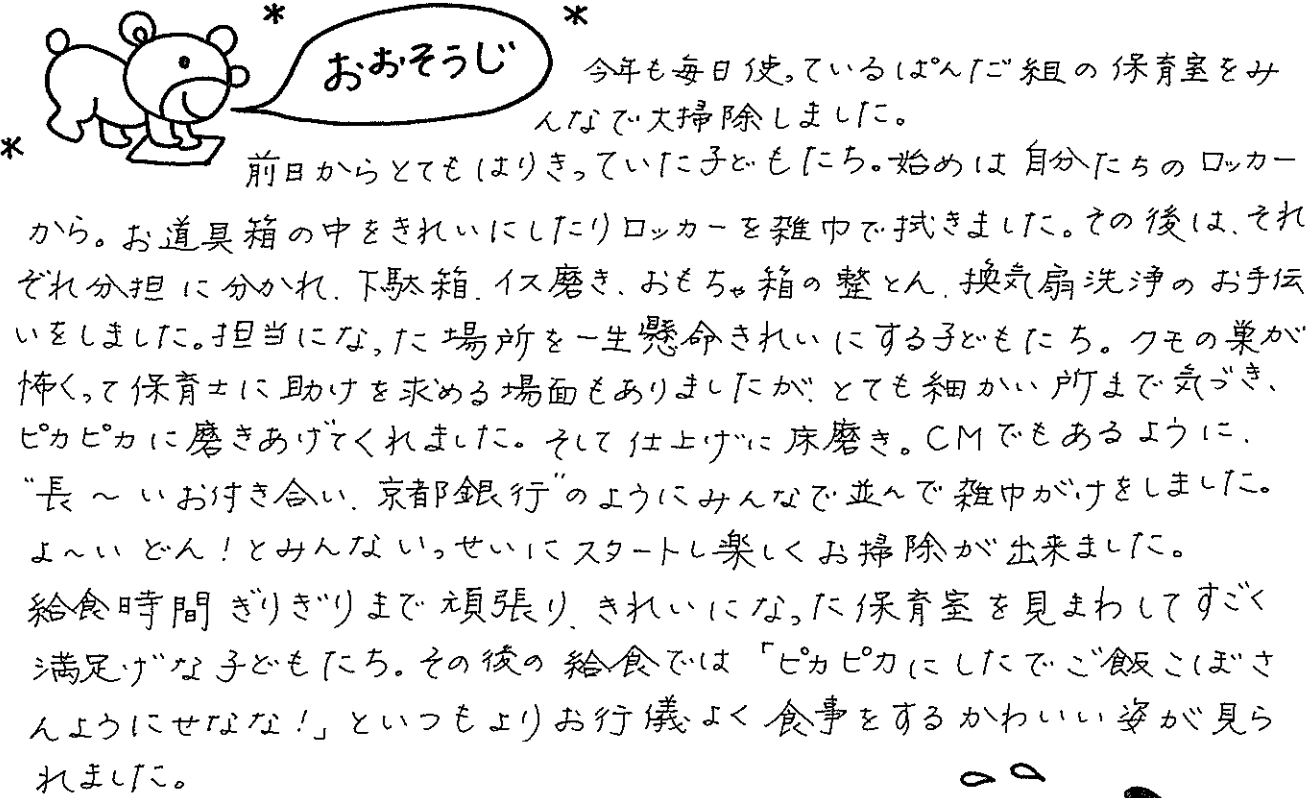 おおそうじ
今年も毎日使っているぱんだ組の保育室をみ
んなで大掃除しました。
前日からとてもはりきっていた子どもたち。始めは自分たちのロッカー
から。お道具箱の中をきれいにしたりロッカーを雑巾で拭きました。その後は、それ
ぞれ分担に分かれ、下駄箱、イス磨き、おもちゃ箱の整とん、換気扇洗浄のお手伝
いをしました。担当になった場所を一生懸命きれいにする子どもたち。クモの巣が
怖くって保育士に助けを求める場面もありましたが、とても細かい所まで気づき、
ピカピカに磨きあげてくれました。そして仕上げに床磨き。CMでもあるように、
“長～いお付き合い、京都銀行”のようにみんなで並んで雑巾がけをしました。
よ～いどん！とみんないっせいにスタートし楽しくお掃除が出来ました。
給食時間ぎりぎりまで頑張り、きれいになった保育室を見まわしてすごく
満足げな子どもたち。その後の給食では「ピカピカにしたでご飯こぼさ
んようにせなな！」といつもよりお行儀よく食事をするかわいい姿が見ら
れました。